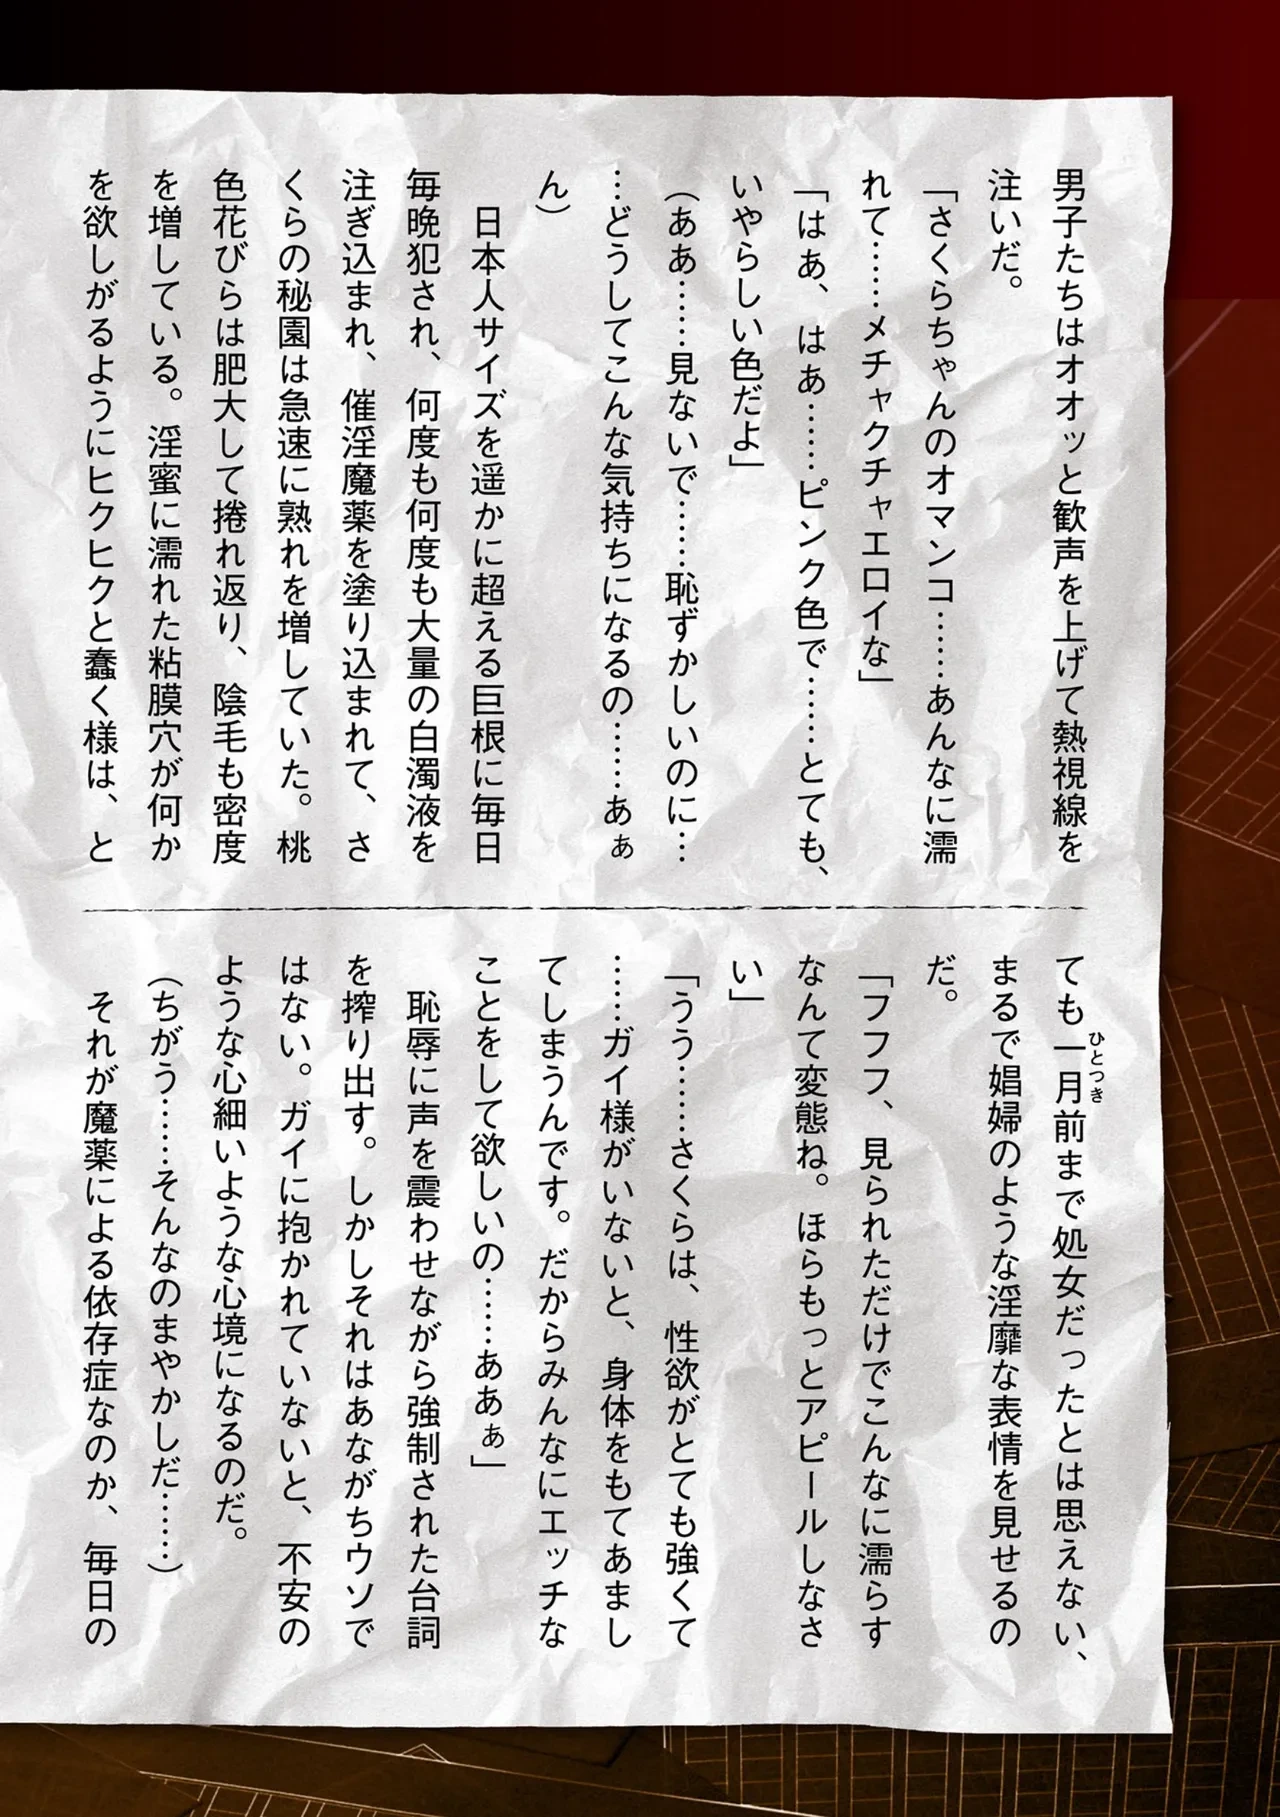 男子たちはオオッと歓声を上げて熱視線を
注いだ。
「さくらちゃんのオマンコ……あんなに濡
れて……メチャクチャエロイな」
「はあ、はあ……ピンク色で……とても、
いやらしい色だよ」
(ああ……見ないで……恥ずかしいのに…
…どうしてこんな気持ちになるの……あぁ
ん)
日本人サイズを遥かに超える巨根に毎日
毎晩犯され、何度も何度も大量の白濁液を
注ぎ込まれ、催淫魔薬を塗り込まれて、さ
くらの秘園は急速に熟れを増していた。桃
色花びらは肥大して捲れ返り、陰毛も密度
を増している。淫蜜に濡れた粘膜穴が何か
を欲しがるようにヒクヒクと蠢く様は、と
ても一月前まで処女だったとは思えない、
ひとつき
まるで娼婦のような淫靡な表情を見せるの
だ。
「フフフ、見られただけでこんなに濡らす
なんて変態ね。ほらもっとアピールしなさ
い」
「うう……さくらは、性欲がとても強くて
……ガイ様がいないと、身体をもてあまし
てしまうんです。だからみんなにエッチな
ことをして欲しいの……ああぁ」
恥辱に声を震わせながら強制された台詞
を搾り出す。しかしそれはあながちウソで
はない。ガイに抱かれていないと、不安の
ような心細いような心境になるのだ。
(ちがう……そんなのまやかしだ……)
それが魔薬による依存症なのか、毎日の